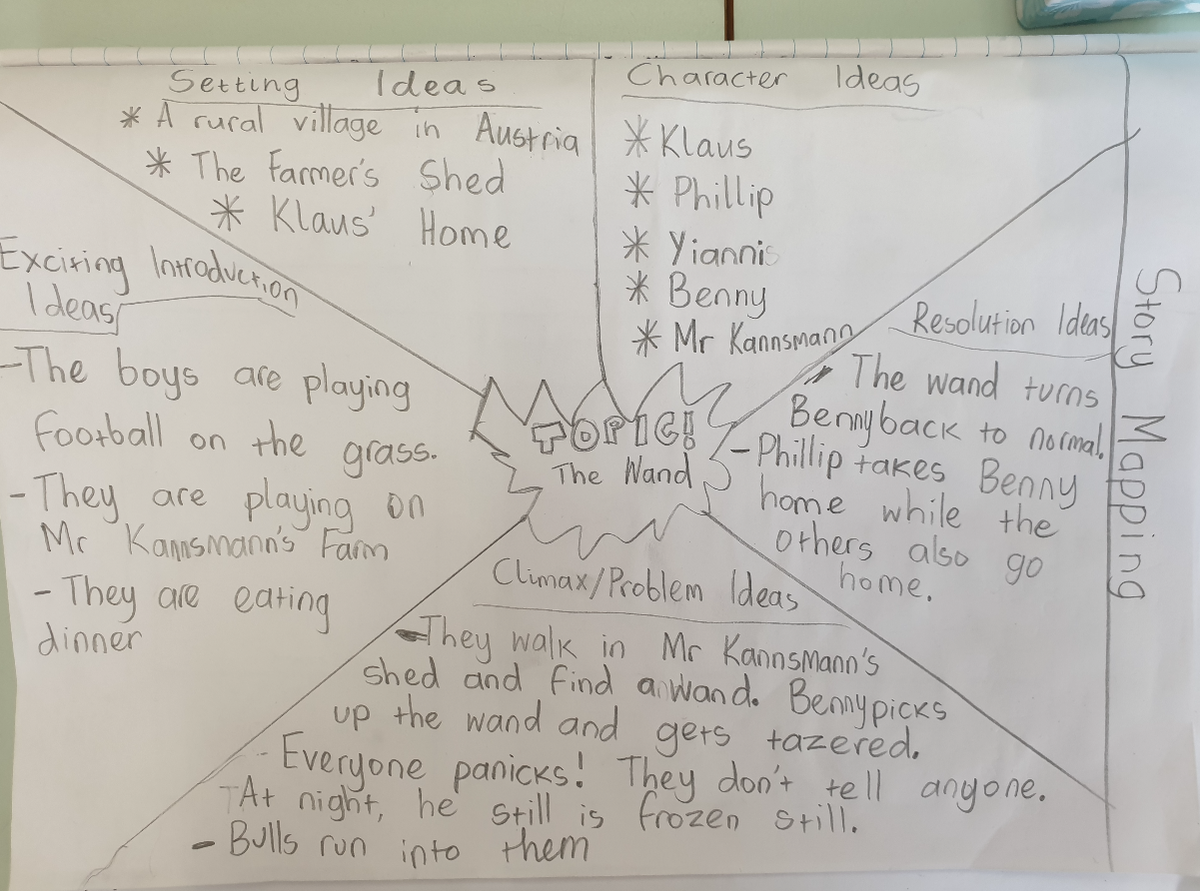 Setting Ideas
* A rural village in Austria
* The Farmer's Shed
* Klaus' Home
Character Ideas
* Klaus
* Phillip
* Yiannis
* Benny
* Mr Kannsmann
Exciting Introduction
Ideas
-The boys are playing
football on the grass.
- They are playing on
Mr Kannsmann's Farm
- They are eating
dinner
TOPIC!
The Wand
Resolution Ideas
- The wand turns
Benny back to normal.
- Phillip takes Benny
home while the
others also go
home.
Climax/Problem Ideas
- They walk in Mr Kannsmann's
shed and find a wand. Benny picks
up the wand and gets tazered.
- Everyone panicks! They don't tell anyone.
- At night, he still is frozen still.
- Bulls run into them
Story Mapping